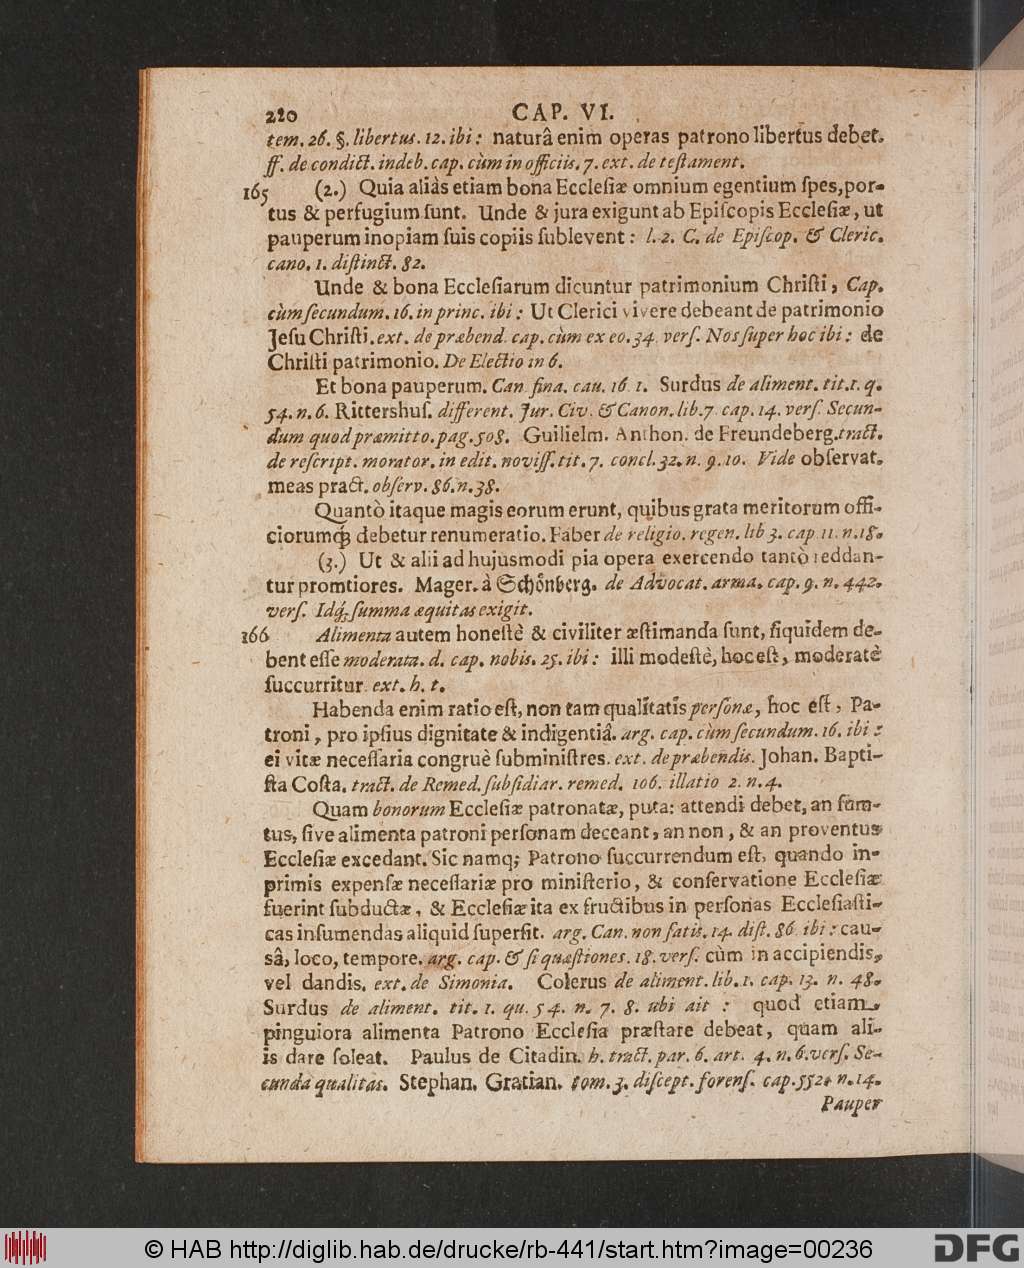 220 CAP. VI.
tem. 26. §. libertus. 12. ibi: naturâ enim operas patrono libertus debet.
ff. de condict. indeb. cap. cùm in officiis. 7. ext. de teſtament.
165 (2.) Quia aliàs etiam bona Eccleſiæ omnium egentium ſpes, por-
tus & perfugium ſunt. Unde & jura exigunt ab Epiſcopis Eccleſiæ, ut
pauperum inopiam ſuis copiis ſublevent: l. 2. C. de Epiſcop. & Cleric.
cano. 1. diſtinct. 82.
Unde & bona Eccleſiarum dicuntur patrimonium Chriſti, Cap.
cùm ſecundum. 16. in princ. ibi: Ut Clerici vivere debeant de patrimonio
Jeſu Chriſti. ext. de præbend. cap. cùm ex eo. 34. verſ. Nos ſuper hoc ibi: de
Chriſti patrimonio. De Electio in 6.
Et bona pauperum. Can. fina. cau. 16. 1. Surdus de aliment. tit. 1. q.
54. n. 6. Rittershuſ. different. Jur. Civ. & Canon. lib. 7. cap. 14. verſ. Secun-
dum quod præmitto. pag. 508. Guilielm. Anthon. de Freundeberg. tract.
de reſcript. morator. in edit. noviſſ. tit. 7. concl. 32. n. 9. 10. Vide obſervat.
meas pract. obſerv. 86. n. 38.
Quantò itaque magis eorum erunt, quibus grata meritorum offi-
ciorumq́; debetur renumeratio. Faber de religio. regen. lib 3. cap. 11. n. 18.
(3.) Ut & alii ad hujusmodi pia opera exercendo tantò reddan-
tur promtiores. Mager. à Schönberg. de Advocat. arma. cap. 9. n. 442.
verſ. Idq́; ſumma æquitas exigit.
166 Alimenta autem honeſtè & civiliter æſtimanda ſunt, ſiquidem de-
bent eſſe moderata. d. cap. nobis. 25. ibi: illi modeſtè, hoc eſt, moderatè
ſuccurritur. ext. h. t.
Habenda enim ratio eſt, non tam qualitatis perſonæ, hoc eſt, Pa-
troni, pro ipſius dignitate & indigentiâ. arg. cap. cùm ſecundum. 16. ibi:
ei vitæ neceſſaria congruè ſubminiſtres. ext. de præbendis. Johan. Bapti-
ſta Coſta. tract. de Remed. ſubſidiar. remed. 106. illatio 2. n. 4.
Quam bonorum Eccleſiæ patronatæ, puta: attendi debet, an ſum-
tus, ſive alimenta patroni perſonam deceant, an non, & an proventus
Eccleſiæ excedant. Sic namq; Patrono ſuccurrendum eſt, quando in-
primis expenſæ neceſſariæ pro miniſterio, & conſervatione Eccleſiæ
fuerint ſubductæ, & Eccleſiæ ita ex fructibus in perſonas Eccleſiaſti-
cas inſumendas aliquid ſuperſit. arg. Can. non ſatis. 14. diſt. 86. ibi: cau-
sâ, loco, tempore. arg. cap. & ſi quæſtiones. 18. verſ. cùm in accipiendis,
vel dandis. ext. de Simonia. Colerus de aliment. lib. 1. cap. 13. n. 48.
Surdus de aliment. tit. 1. qu. 54. n. 7. 8. ubi ait: quod etiam
pinguiora alimenta Patrono Eccleſia præſtare debeat, quam ali-
is dare ſoleat. Paulus de Citadin. h. tract. par. 6. art. 4. n. 6. verſ. Se-
cunda qualitas. Stephan. Gratian. tom. 3. diſcept. forenſ. cap. 552. n. 14.
Pauper
© HAB http://diglib.hab.de/drucke/rb-441/start.htm?image=00236
DFG